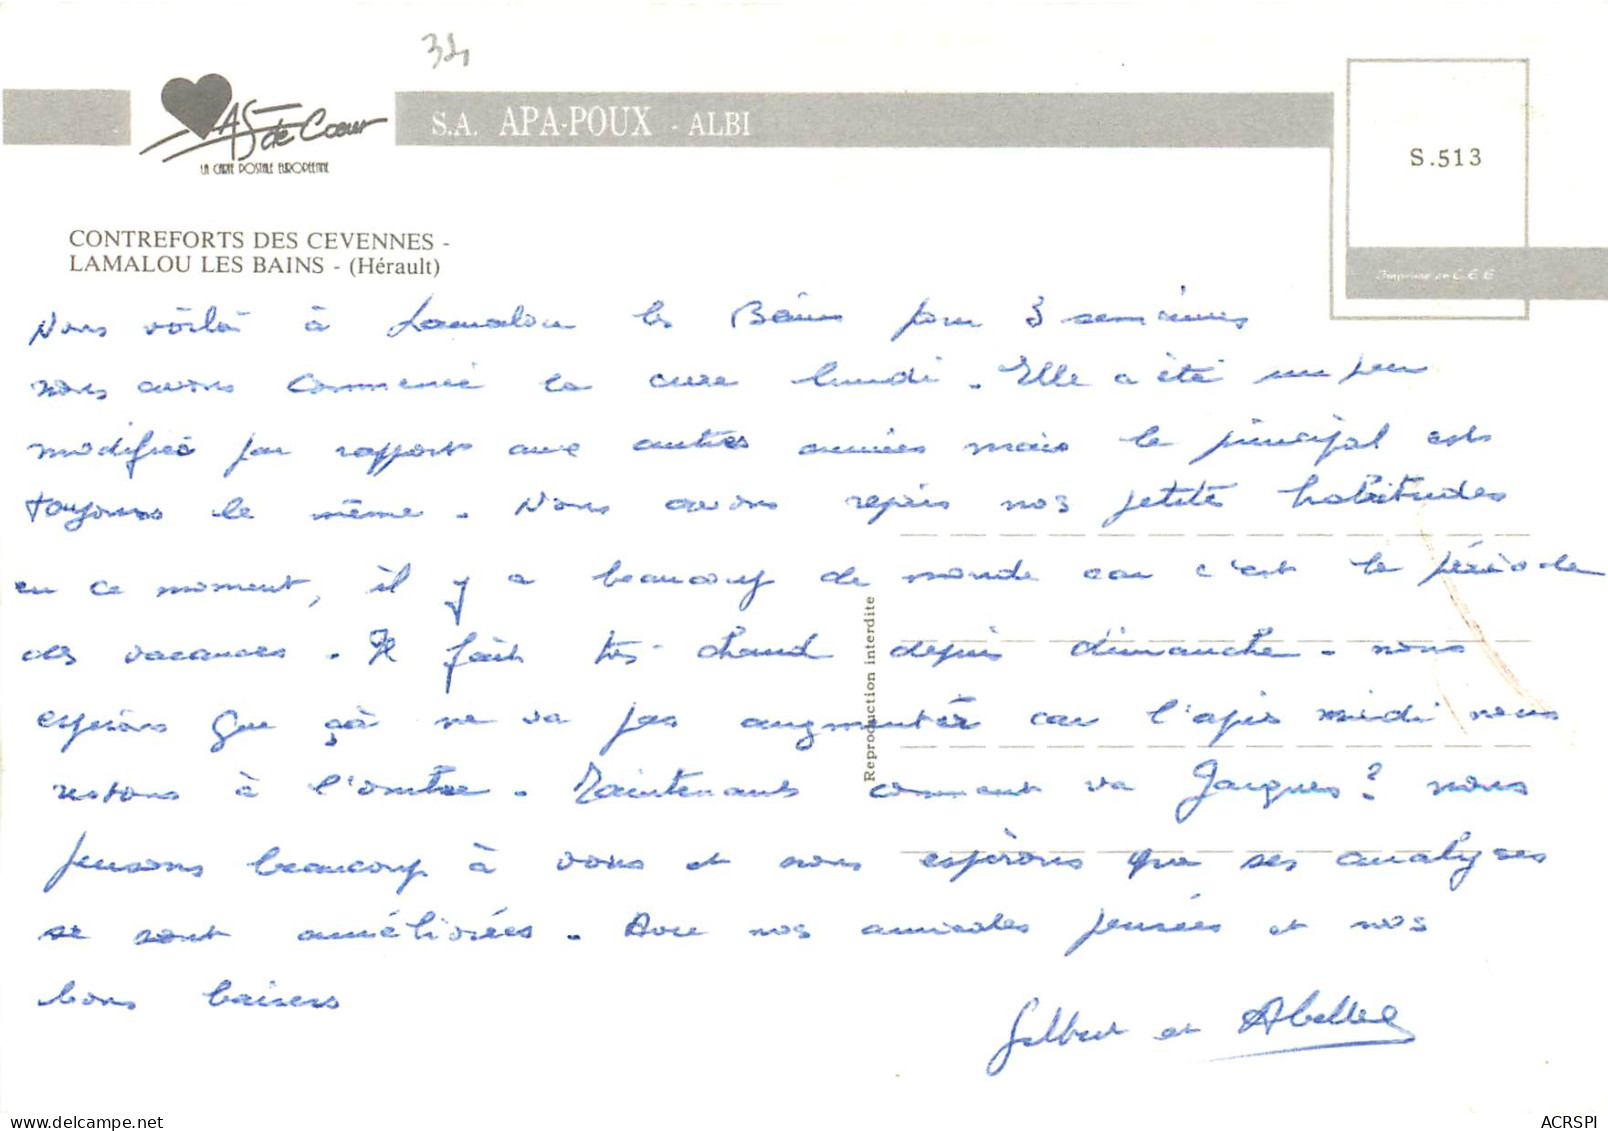 34
As de Coeur
LA CARTE POSTALE EUROPÉENNE
S.A. APA-POUX - ALBI
S.513
Imprimé en C.E.E
CONTREFORTS DES CEVENNES -
LAMALOU LES BAINS - (Hérault)
Nous voilà à Lamalou les Bains pour 3 semaines
nous avons commencé la cure lundi. Elle a été un peu
modifiée par rapport aux autres années mais le principal est
toujours le même. Nous avons repris nos petites habitudes
en ce moment, il y a beaucoup de monde car c'est la période
des vacances. Il fait très chaud depuis dimanche. nous
espérons que çà ne va pas augmenter car l'après midi nous
restons à l'ombre. Maintenant comment va Jacques? nous
pensons beaucoup à vous et nous espérons que ses analyses
se sont améliorées. Avec nos amicales pensées et nos
bons baisers
Gilbert et Abelle
Reproduction interdite
ACRSPI